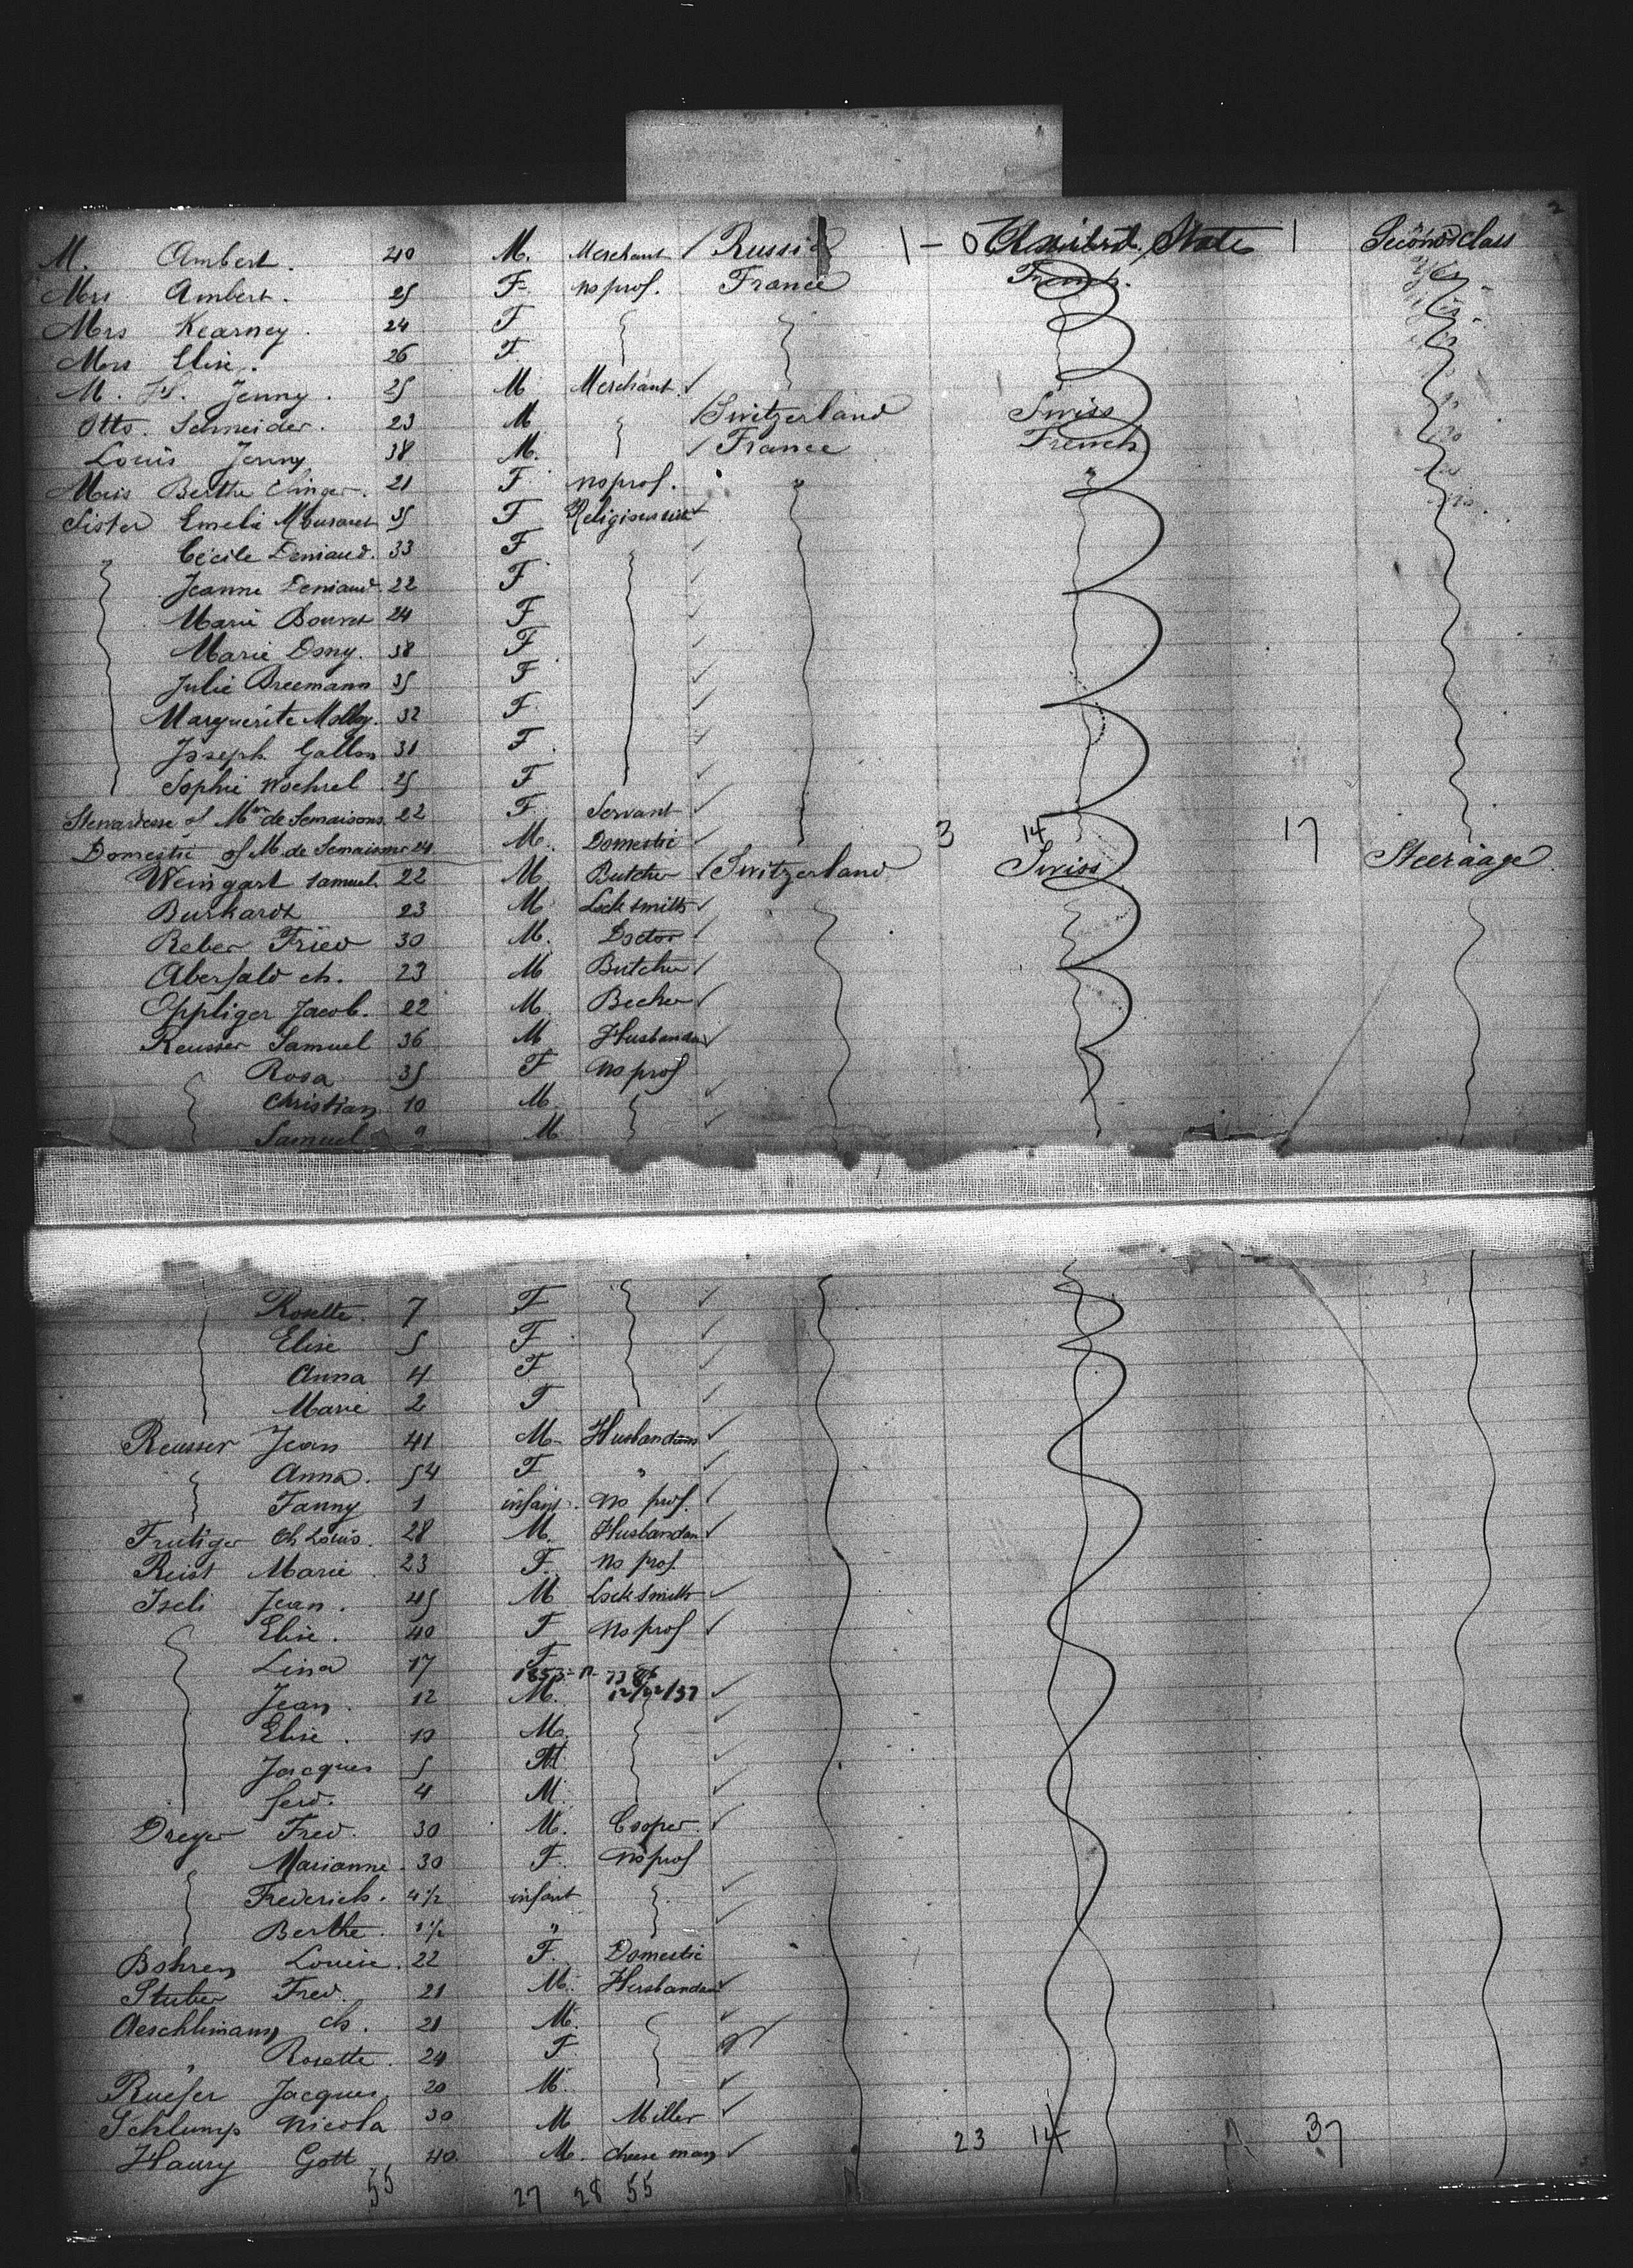 2
M. Ambert. 40 M. Merchant Russia 1 - 0 United State 1 Second class
Mrs Ambert. 25 F. no prof. France French.
Mrs Kearney. 24 F
Mrs Elise. 26 F.
M. H. Jenny. 25 M Merchant.
Otto. Schneider. 23 M Switzerland Swiss
Louis Jenny 38 M. France French
Berthe Clinger. 21 F no prof. " "
Sister Emelie 35 F
Cécile Deniaud. 33 F
Jeanne Deniaud. 22 F
Marie Bouvet 24 F
Marie Dony. 38 F
Julie Breemann 35 F
Marguerite Molly. 32 F.
Joseph Gallon 31 F.
Sophie Woehrel. 25 F
Stewardesse of Mme de Semaisons. 22 F. Servant
Domestic of M. de Semaisons 24. M. Domestic 3 14 17
Weingart Samuel. 22 M. Butcher Switzerland Swiss Steeraage
Burkardt 23 M Lock smith
Reber Fried 30 M. Doctor
Abersald ch. 23 M Butcher
Oppliger Jacob. 22 M. Becker
Reusser Samuel 36 M Husbandm
Rosa 35 F no prof
Christian 10 M.
Samuel 9 M.
Rosette. 7 F
Elise 5 F
Anna 4 F
Marie 2 F
Reusser Jean 41 M. Husbandman
Anna. 54 F "
Fanny 1 infant. no prof.
Frutiger Ch Louis. 28 M. Husbandm
Reist Marie. 23 F. no prof.
Iseli Jean. 45 M Lock smith
Elise. 40 F no prof
Lina 17 F
Jean. 12 M. 12/22/37
Elise. 10 M.
Jacques 5 M.
ferd. 4 M.
Dreyer Fred. 30 M. Cooper.
Marianne. 30 F. no prof
Frederich. 4 1/2 infant
Berthe. 1 1/2 "
Bohren Louise. 22 F. Domestic
Stuber Fred. 21 M. Husbandm
Aeschlimann ch. 21 M.
" Rosette. 24 F
Ruefer Jacques 20 M.
Schlump Nicola 30 M Miller
Haury Gott 40. M. cheese man 23 14 37
55 27 28 55